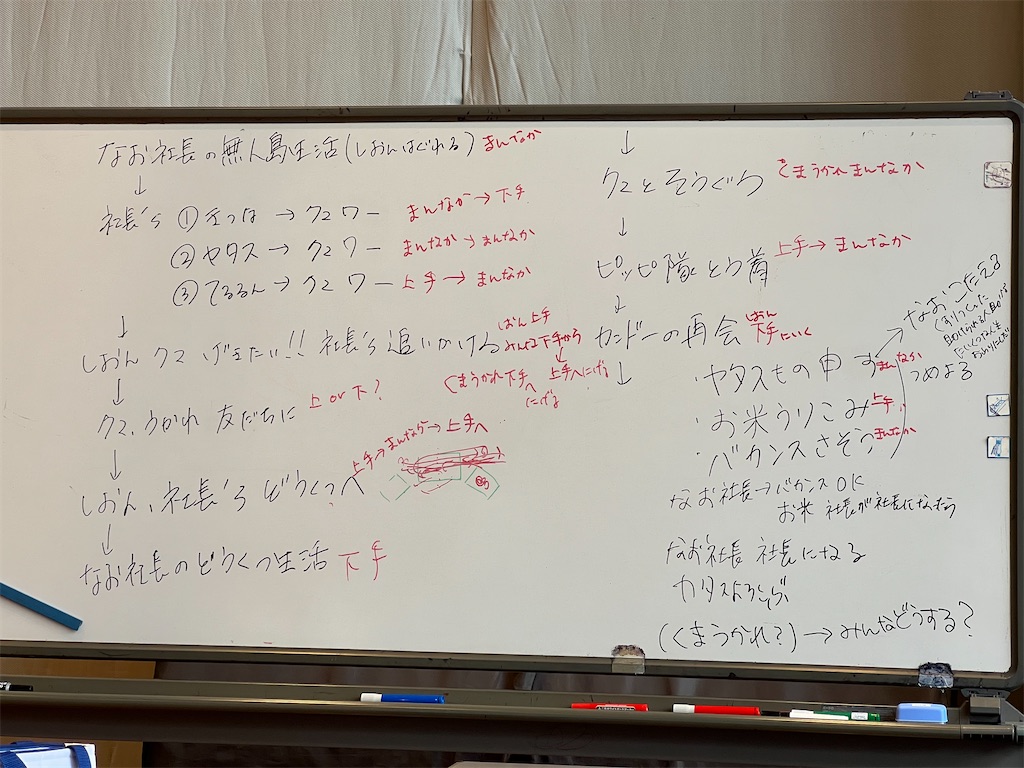 なお社長の無人島生活(しおんはぐれる) まんなか
↓
社長ら ① → クマ ワー まんなか→下手
② ヤタス → クマ ワー まんなか→まんなか
③ てるるん → クマ ワー 上手→まんなか
↓
しおん クマ げきたい!! 社長ら追いかける
しおん上手
みんな下手から
くまうかれ下手へにげる
上手へにげる
↓
クマ、うかれ 友だちに 上or下?
↓
しおん、社長ら どうくつへ 上手→まんなか→上手へ
↓
なお社長のどうくつ生活 下手
↓
クマとそうぐう くまうかれまんなか
↓
ピッピ隊と 上手→まんなか
↓
の再会 しおん下手にいく
↓
・ヤタスもの申す まんなか
・お米うりこみ 上手
・バカンスさそう まんなか
なおこたえる
つめよる
なお社長→バカンスOK
お米 社長が社長になったら
なお社長 社長になる
よろこぶ
(くまうかれ?)→みんなどうする?